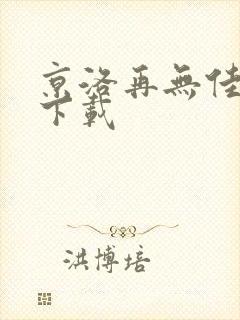 京洛再無佳
下載
洪博培